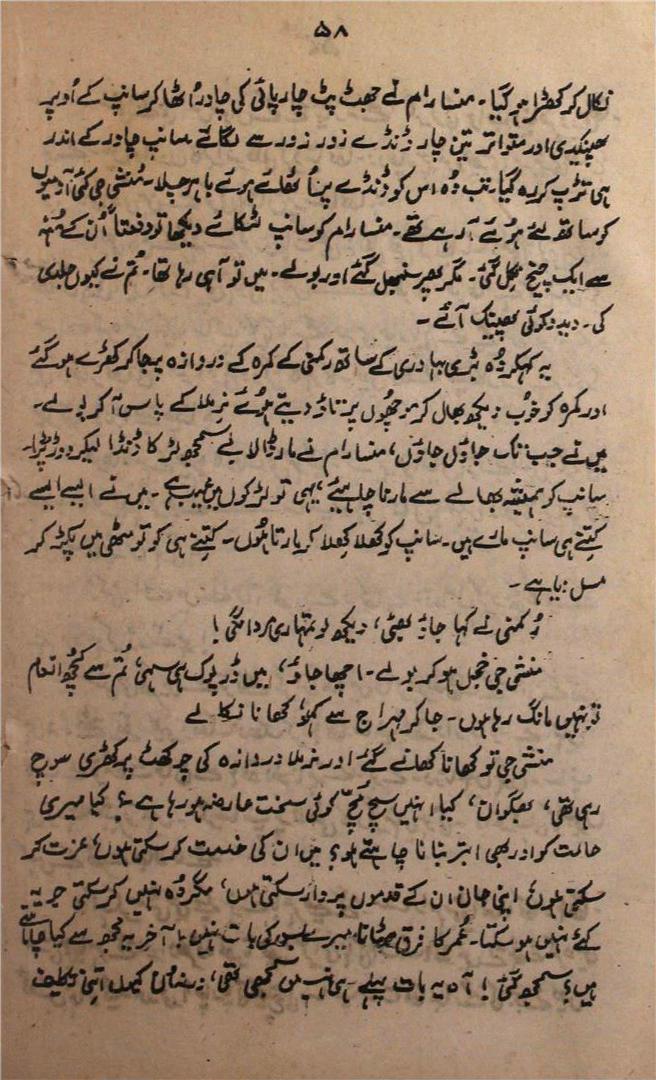 ۵۸
نکال کر کھڑا ہو گیا۔ منسا رام نے جھٹ پٹ چارپائی کی چادر اُٹھا کر سانپ کے اُوپر
پھینکدی اور متواتر تین چار ڈنڈے زور زور سے لگائے سانپ چادر کے اندر
ہی تڑپ کر رہ گیا۔ تب وُہ اس کو ڈنڈے پر اُٹھائے ہوئے باہر چلا۔ مُنشی جی کئی آدمیوں
کو ساتھ لئے ہوئے آ رہے تھے۔ منسا رام کو سانپ لٹکائے دیکھا تو دفعتاً اُن کے مُنہ
سے ایک چیخ نکل گئی۔ مگر پھر سنبھل گئے اور بولے۔ میں تو آ ہی رہا تھا۔ تُم نے کیوں جلدی
کی۔ دیدو کوئی پھینک آئے۔
یہ کہکر وُہ بڑی بہادری کے ساتھ رکمنی کے کمرہ کے دروازہ پر جا کر کھڑے ہو گئے
اور کمرہ کو خُوب دیکھ بھال کر مونچھوں پر تاؤ دیتے ہوئے نرملا کے پاس آ کر بولے۔
میں نے جب تک جاؤں جاؤں، منسا رام نے مار ڈالا بے سمجھ لڑکا ڈنڈا لیکر دوڑ پڑا۔
سانپ کو ہمیشہ بھالے سے مارنا چاہیئے، یہی تو لڑکوں میں عیب ہے۔ میں نے ایسے ایسے
کتنے ہی سانپ مارے ہیں۔ سانپ کو کھلا کھلا کر مارتا ہُوں۔ کتنے ہی کو تو مٹھی میں پکڑ کر
مسل دیا ہے۔
رُکمنی نے کہا جاؤ بھئی، دیکھ لو تمہاری مردانگی!
منشی جی خجل ہو کر بولے۔ اچھا جاؤ، میں ڈرپوک ہی سہی، تُم سے کُچھ انعام
تو نہیں مانگ رہا ہوں۔ جا کر مہراج سے کہو، کھانا نکالے
منشی جی تو کھانا کھانے گئے اور نرملا دروازہ کی چوکھٹ پر کھڑی سوچ
رہی تھی، بھگوان، کیا انہیں سچ مُچ کوئی سخت عارضہ ہو رہا ہے؟ کیا میری
حالت کو اور بھی ابتر بنانا چاہتے ہو؟ میں ان کی خدمت کر سکتی ہوں، عزت کر
سکتی ہوں، اپنی جان ان کے قدموں پر وار سکتی ہوں، مگر وُہ نہیں کر سکتی جو یہ
کئے نہیں ہو سکتا۔ عُمر کا فرق مِٹانا میرے بس کی بات نہیں! آخر یہ مُجھ سے کیا چاہتے
ہیں؟ سمجھ گئی! آہ یہ بات پہلے ہی نہیں سمجھی تھی، ورنہ کیوں اتنی تکلیف